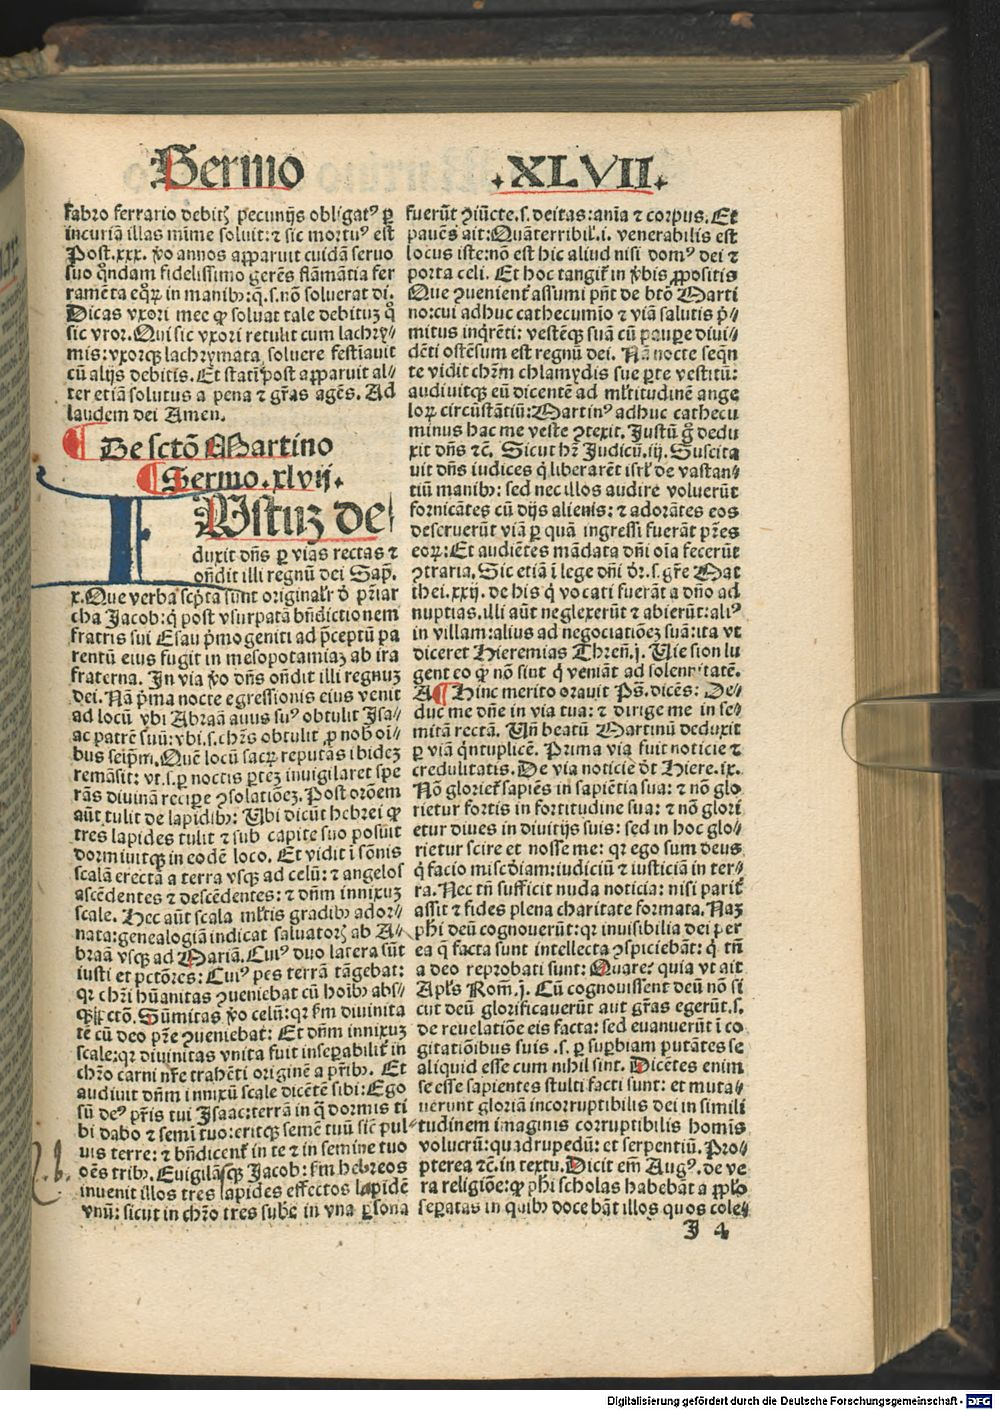 Sermo .XLVII.
fabro ferrario debitꝫ pecunijs obligatꝰ ꝑ
incuriã illas mĩme soluit: ⁊ sic mortuꝰ est
Post .xxx. ṽo annos apparuit cuidã seruo
suo q̃ndam fidelissimo gerẽs flãmãtia fer
ramẽta eqͦꝝ in manibꝰ: q̃.s. nõ soluerat di.
Dicas vxori mee ꝙ soluat tale debituꝫ qͦ
sic vror. Qui sic vxori retulit cum lachry⸗
mis: vxorqꝫ lachrymata soluere festĩauit
cũ alijs debitis. Et statĩ post apparuit al⸗
ter etiã solutus a pena ⁊ gr̃as agẽs. Ad
laudem dei Amen.
De sctõ Martino
Sermo .xlvij.
IVstuꝫ de
duxit dñs ꝑ vias rectas ⁊
oñdit illi regnũ dei Sap̃.
x. Que verba scp̃ta sunt originalr̃ ð pr̃iar
cha Jacob: q̇ post vsurpatã bñdictionem
fratris sui Esau pͥmogeniti ad p̃ceptũ pa
rentũ eius fugit in mesopotamiaꝫ ab ira
fraterna. In via ṽo dñs oñdit illi regnuꝫ
dei. Nã pͥma nocte egressionis eius venit
ad locũ vbi Abraã auus suꝰ obtulit Isa⸗
ac patrẽ suũ: vbi.s. chr̃s obtulit ꝓ nob̃ oĩ⸗
bus seip̃m. Quẽ locũ sacꝝ reputãs ibideꝫ
remãsit: vt.s. ꝑ noctis ꝑteꝫ inuigilaret spe
rãs diuinã recipe ꝯsolatiõeꝫ. Post orõem
aũt tulit de lapidibꝰ: Vbi dicũt hebrei ꝙ
tres lapides tulit ⁊ sub capite suo posuit
dormiuitqꝫ in eodẽ loco. Et vidit ĩ sõnis
scalã erectã a terra vsqꝫ ad celũ: ⁊ angelos
ascẽdentes ⁊ descẽdentes: ⁊ dñm innixuꝫ
scale. Hec aũt scala ml̃tis gradibꝰ ador⸗
nata: genealogiã indicat saluatorꝭ ab A⸗
braã vsqꝫ ad Mariã. Cuiꝰ duo latera sũt
iusti et pctõres: Cuiꝰ pes terrã tãgebat:
qꝛ chr̃i hũanitas ꝯueniebat cũ hoĩbꝰ abs⸗
qꝫ pctõ. Sũmitas ṽo celũ: qꝛ ẜm diuinita
tẽ cũ deo pr̃e ꝯueniebat: Et dñm innixuꝫ
scale: qꝛ diuinitas vnita fuit insepabilit̃ in
chr̃o carni nr̃e trahẽti originẽ a pr̃ibꝰ. Et
audiuit dñm innixũ scale dicẽtẽ sibi: Ego
sũ deꝰ pr̃is tui Isaac: terrã in q̃ dormis ti
bi dabo ⁊ semĩ tuo: eritqꝫ semẽ tuũ sic̃ pul⸗
uis terre: ⁊ bñdicent̃ in te ⁊ in semine tuo
oẽs tribꝰ. Euigilãsqꝫ Jacob: ẜm hebreos
inuenit illos tres lapides effectos lapidẽ
vnũ: sicut in chr̃o tres sub̃e in vna ꝑsona
fuerũt ꝯiũcte.s. deitas: aĩa ⁊ corpus. Et
pauẽs ait: Quã terribil̃.i. venerabilis est
locus iste: nõ est hic aliud nisi domꝰ dei ⁊
porta celi. Et hoc tangit̃ in ṽbis ꝓpositis
Que ꝯuenient̃ assumi pñt de btõ Marti
no: cui adhuc cathecumio ⁊ viã salutis p̃⸗
mitus inq̃rẽti: vestẽqꝫ suã cũ paupe diui⸗
dẽti ostẽsum est regnũ dei. Nã nocte seqñ
te vidit chr̃m chlamydis sue ꝑte vestitũ:
audiuitqꝫ eũ dicentẽ ad ml̃titudinẽ ange
loꝝ circũstãtiũ: Martinꝰ adhuc cathecu
minus hac me veste ꝯtexit. Justũ g̃ dedu
xit dñs ⁊c̃. Sicut hr̃ Judicũ.iij. Suscita
uit dñs iudices q̇ liberarẽt isrl̃ de vastan⸗
tiũ manibꝰ: sed nec illos audire voluerũt
fornicãtes cũ dijs alienis: ⁊ adorãtes eos
deseruerũt viã ꝑ quã ingressi fuerãt pr̃es
eoꝝ: Et audiẽtes mãdata dñi oĩa fecerũt
ꝯtraria. Sic etiã ĩ lege dñi ðr.s. gr̃e Mat
thei.xxij. de his q̇ vocati fuerãt a dño ad
nuptias. illi aũt neglexerũt ⁊ abierũt: aliꝰ
in villam: alius ad negociatiõeꝫ suã: ita vt
diceret Hieremias Thren̄.j. Vie sion lu
gent eo ꝙ nõ sint q̇ veniãt ad solennitatẽ.
A Hinc merito orauit Ps̃. dicẽs: De⸗
duc me dñe in via tua: ⁊ dirige me in se⸗
mitã rectã. Vñ beatũ Martinũ deduxit
ꝑ viã q̃ntuplicẽ. Prima via fuit noticie ⁊
credulitatis. De via noticie ðt Hiere.ix.
Nõ gloriet̃ sapiẽs in sapiẽtia sua: ⁊ nõ glo
rietur fortis in fortitudine sua: ⁊ nõ glori
etur diues in diuitijs suis: sed in hoc glo⸗
rietur scire et nosse me: qꝛ ego sum deus
q̇ facio mis̃cðiam: iudiciũ ⁊ iusticiã in ter⸗
ra. Nec tñ sufficit nuda noticia: nisi parit̃
assit ⁊ fides plena charitate formata. Naꝫ
phi deũ cognouerũt: qꝛ inuisibilia dei per
ea q̃ facta sunt intellecta ꝯspiciebãt: q̇ tñ
a deo reprobati sunt: Quare? quia vt ait
Apl̃s Rom̃.j. Cũ cognouissent deũ nõ si
cut deũ glorificauerũt aut gr̃as egerũt.s.
de reuelatiõe eis facta: sed euanuerũt ĩ co
gitatiõibus suis.s. ꝑ supbiam putãtes se
aliquid esse cum nihil sint. Dicẽtes enim
se esse sapientes stulti facti sunt: et muta⸗
uerunt gloriã incorruptibilis dei in simili
tudinem imaginis corruptibilis homis
volucrũ: quadrupedũ: et serpentiũ. Pro⸗
pterea ⁊c̃. in textu. Dicit em̃ Augꝰ. de ve
ra religiõe: ꝙ phi scholas habebãt a pplo
sepatas in quibꝰ docebãt illos quos cole⸗
J 4
Digitalisierung gefördert durch die Deutsche Forschungsgemeinschaft - DFG